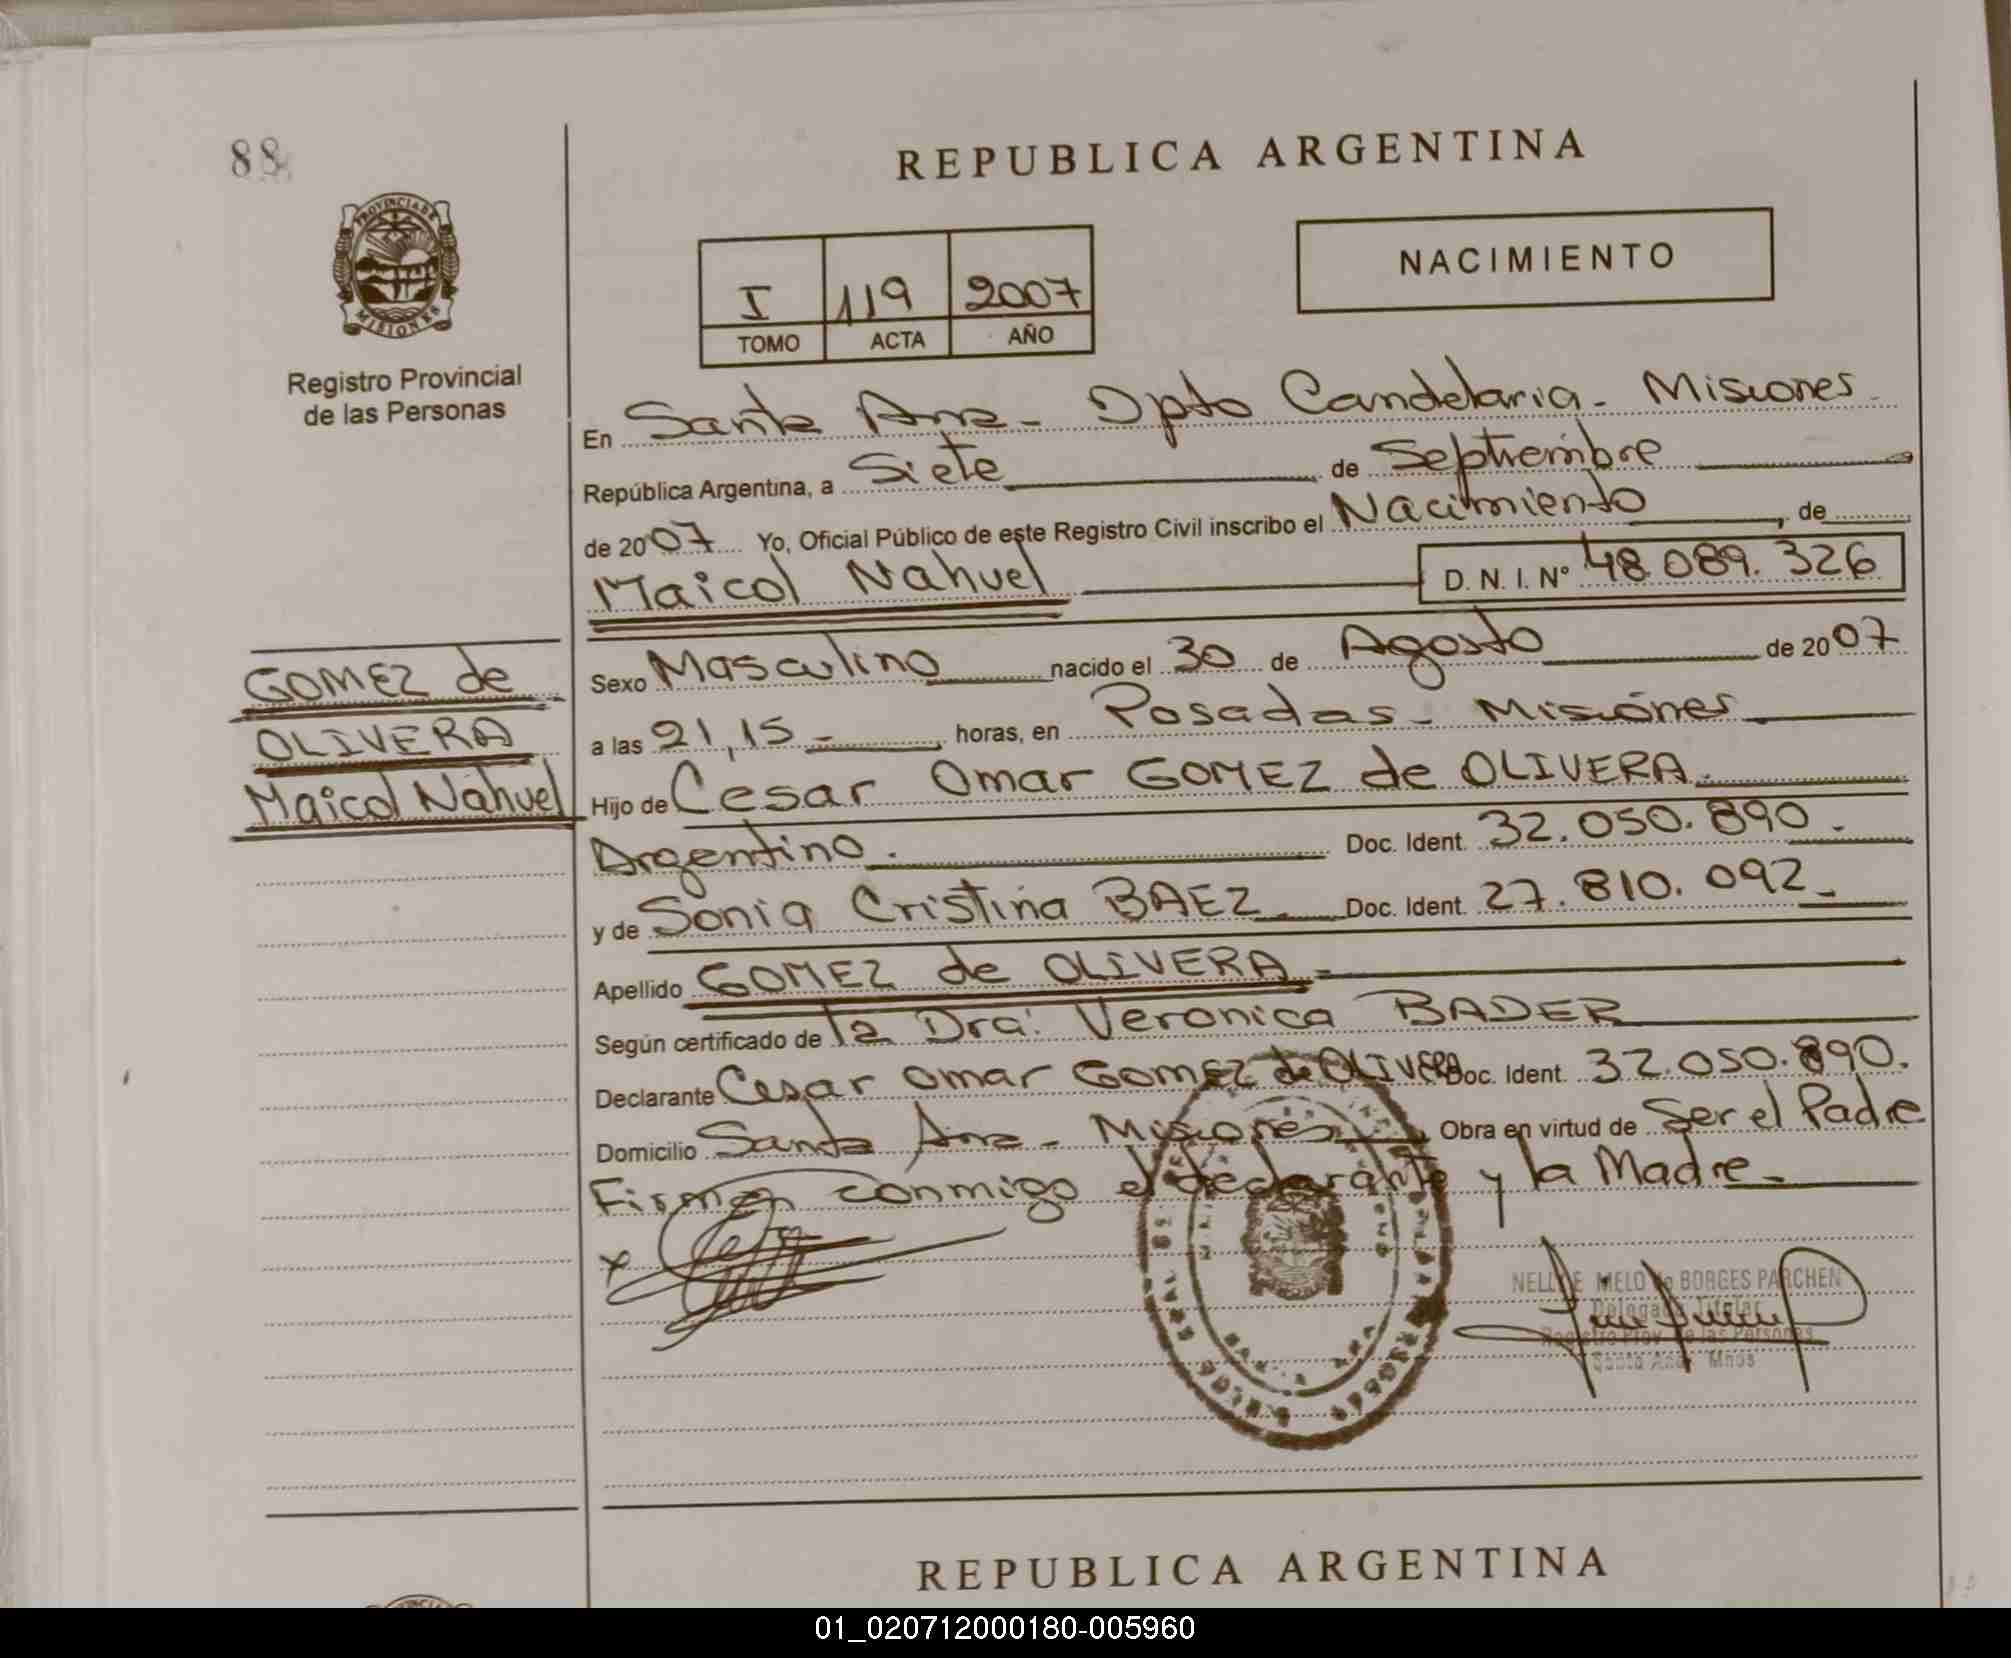 88
REPUBLICA ARGENTINA
PROVINCIA DE
MISIONES
Registro Provincial
de las Personas
I 119 2007
TOMO ACTA AÑO
NACIMIENTO
En Santa Ana - Dpto Candelaria - Misiones
República Argentina, a Siete de Septiembre
de 2007 Yo, Oficial Público de este Registro Civil inscribo el Nacimiento, de
Maicol Nahuel D. N. I. Nº 48.089.326
GOMEZ de
OLIVERA
Maicol Nahuel
Sexo Masculino nacido el 30 de Agosto de 2007
a las 21,15 - horas, en Posadas - Misiones
Hijo de Cesar Omar GOMEZ de OLIVERA.
Argentino. Doc. Ident. 32.050.890.
y de Sonia Cristina BAEZ Doc. Ident. 27.810.092
Apellido GOMEZ de OLIVERA
Según certificado de la Dra. Veronica BADER
Declarante Cesar Omar Gomez de OLIVERA Doc. Ident. 32.050.890.
Domicilio Santa Ana - Misiones Obra en virtud de Ser el Padre
Firman conmigo el declarante y la Madre -
NELLY E MELO de BORGES PARCHEN
Delegada Titular
Registro Prov. de las Personas
Santa Ana Mnes
REPUBLICA ARGENTINA
01_020712000180-005960